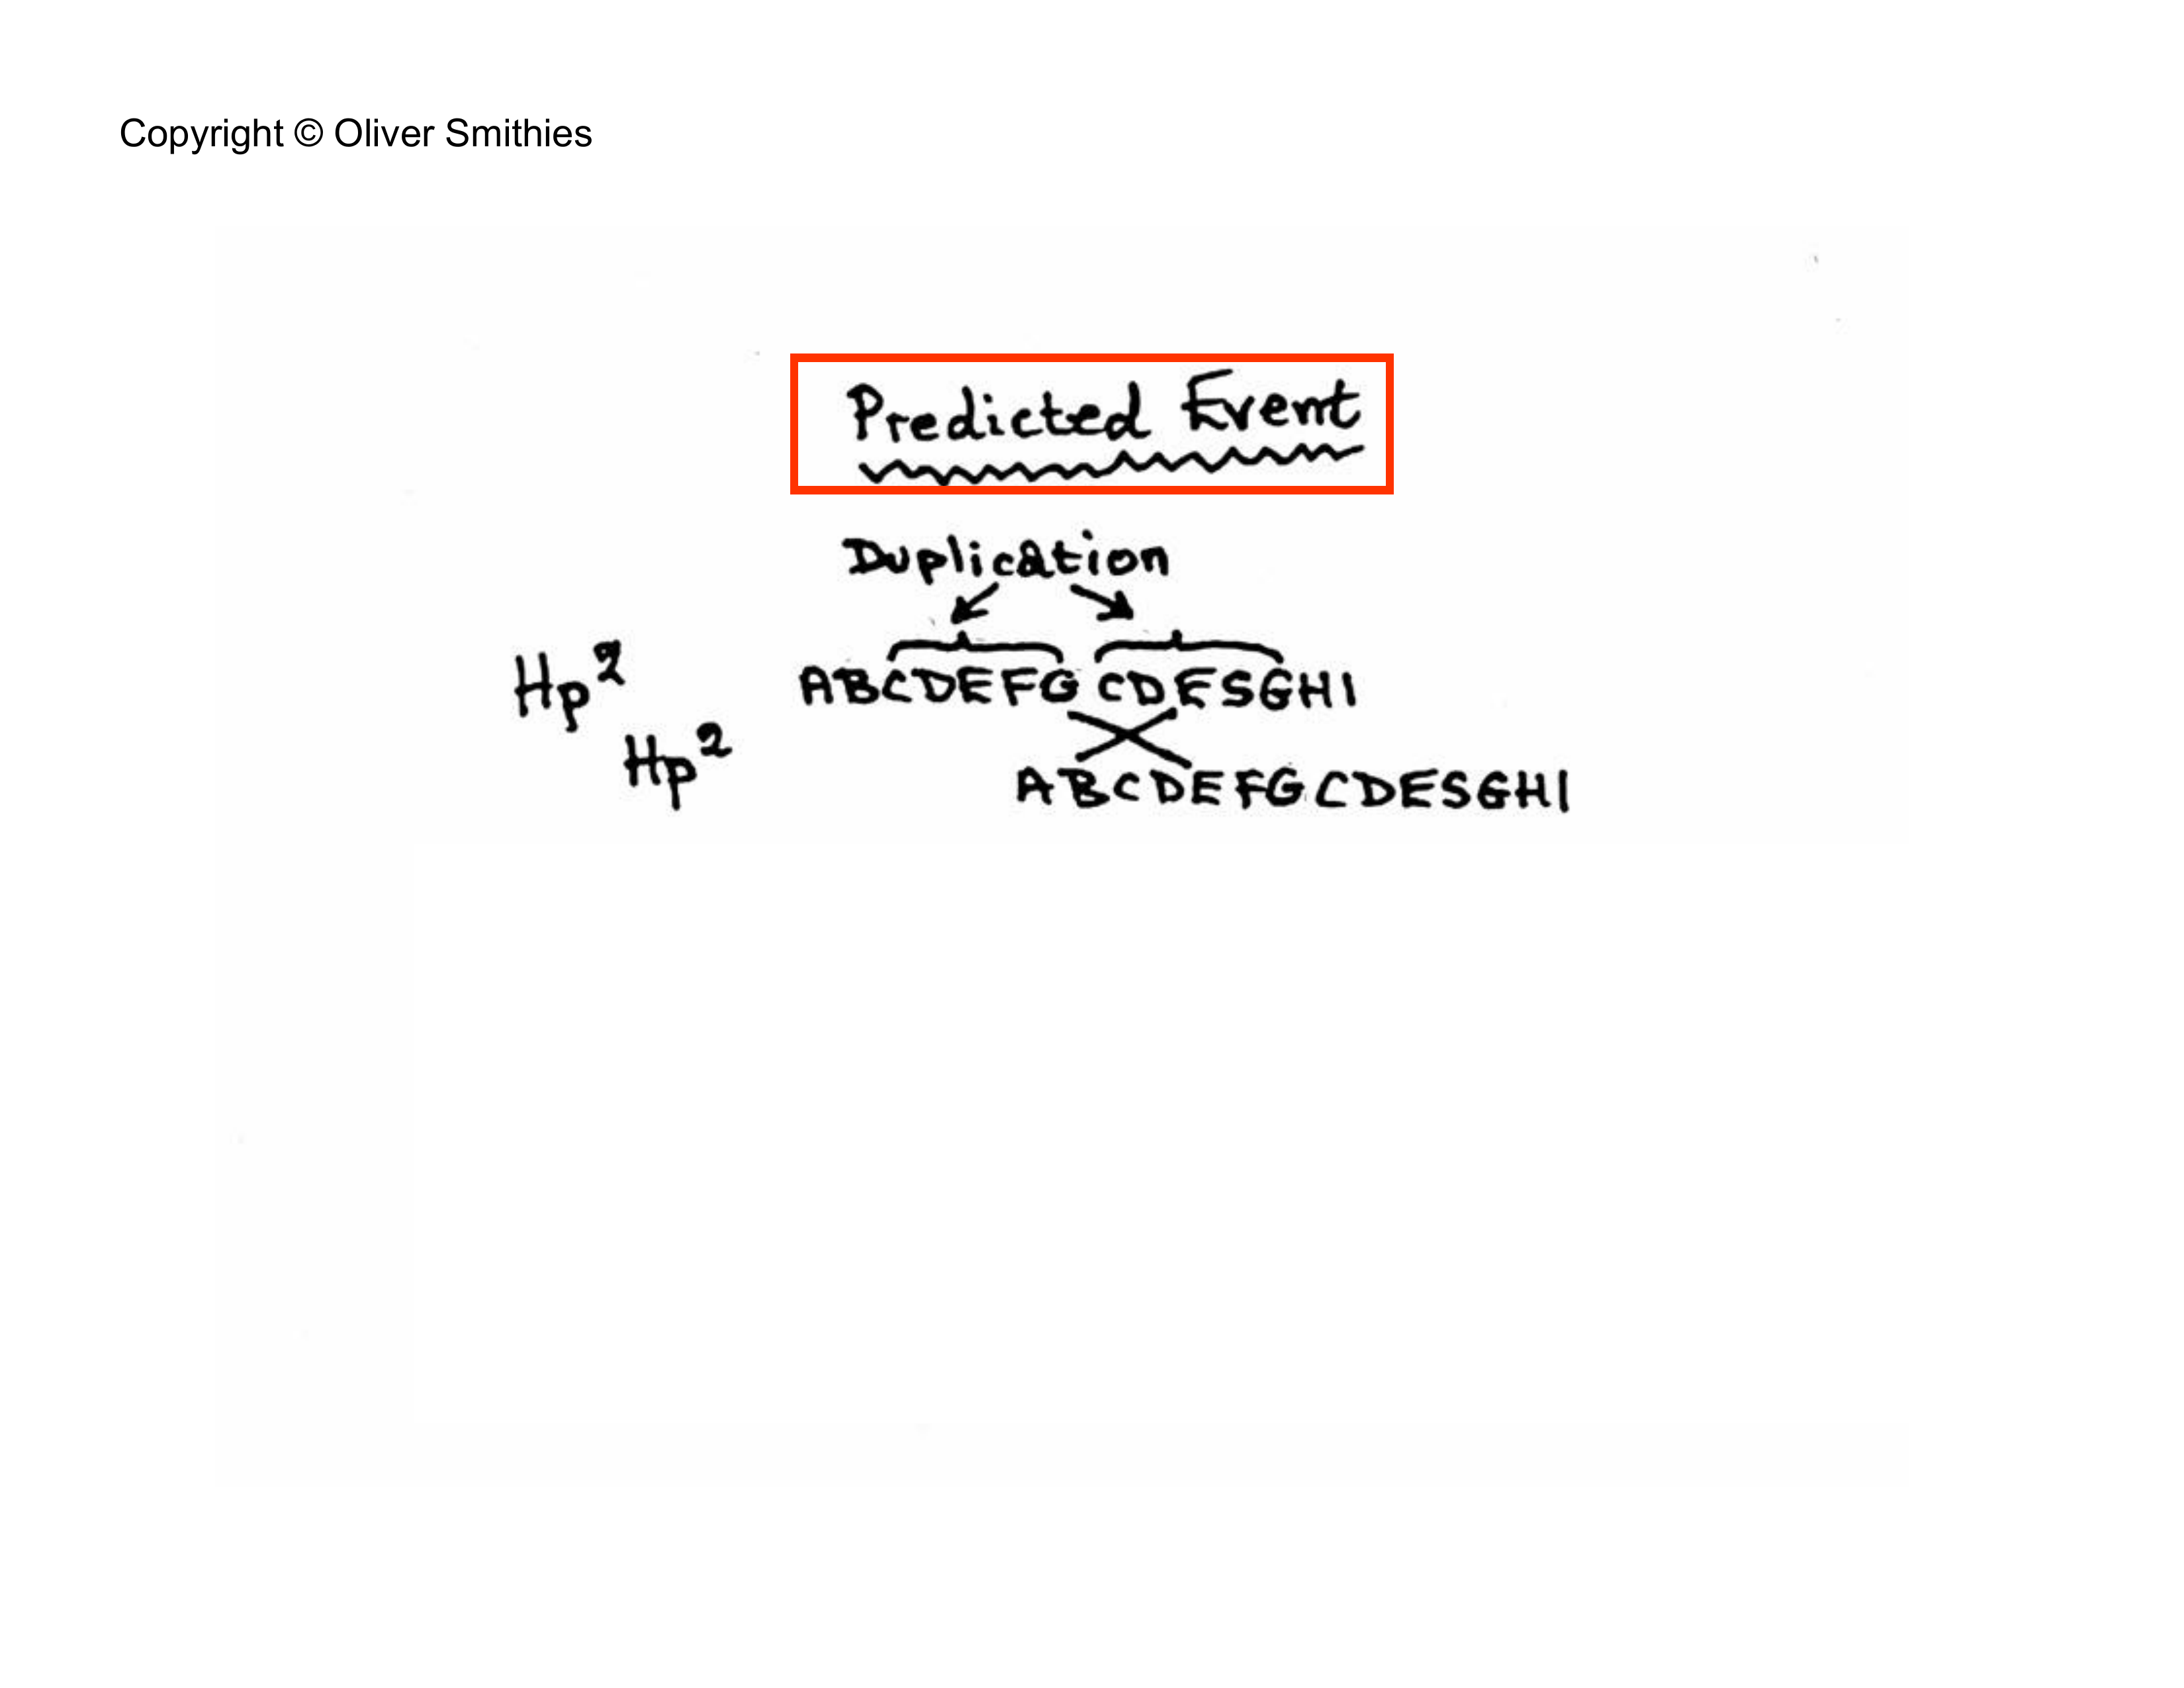 Copyright © Oliver Smithies
Predicted Event
Duplication
Hp² ABCDEFG CDESGHI
Hp² ABCDEFGCDESGHI